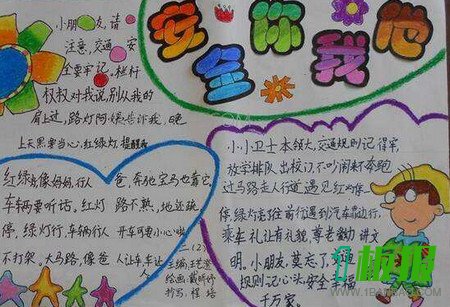 安全你我他
小朋友,请
注意,交通安
全要牢记。栏杆
杈杈对我说,别从我的
肩上过,路灯阿姨告诉我,晚
上天黑要当心,红绿灯,提醒我
红绿灯像妈妈,行人
车辆要听话。红灯
停,绿灯行,车辆行人
不打架。大马路,像爸
爸,奔驰宝马也靠它,
路不熟,地还跳
开车可要小心
人让车车让人
三(2)
主编:王艺
绘画:戴
抄写:程
小小卫士本领大,交通规则记得牢,
放学排队出校门,不吵闹来不奔跑
过马路走人行道,遇见红灯停
停,绿灯走在前行,遇到汽车靠边行,
乘车礼让有礼貌,尊老敬幼讲文
明。小朋友,莫忘了,交通
规则记心头,安全幸福
千万家。
板报